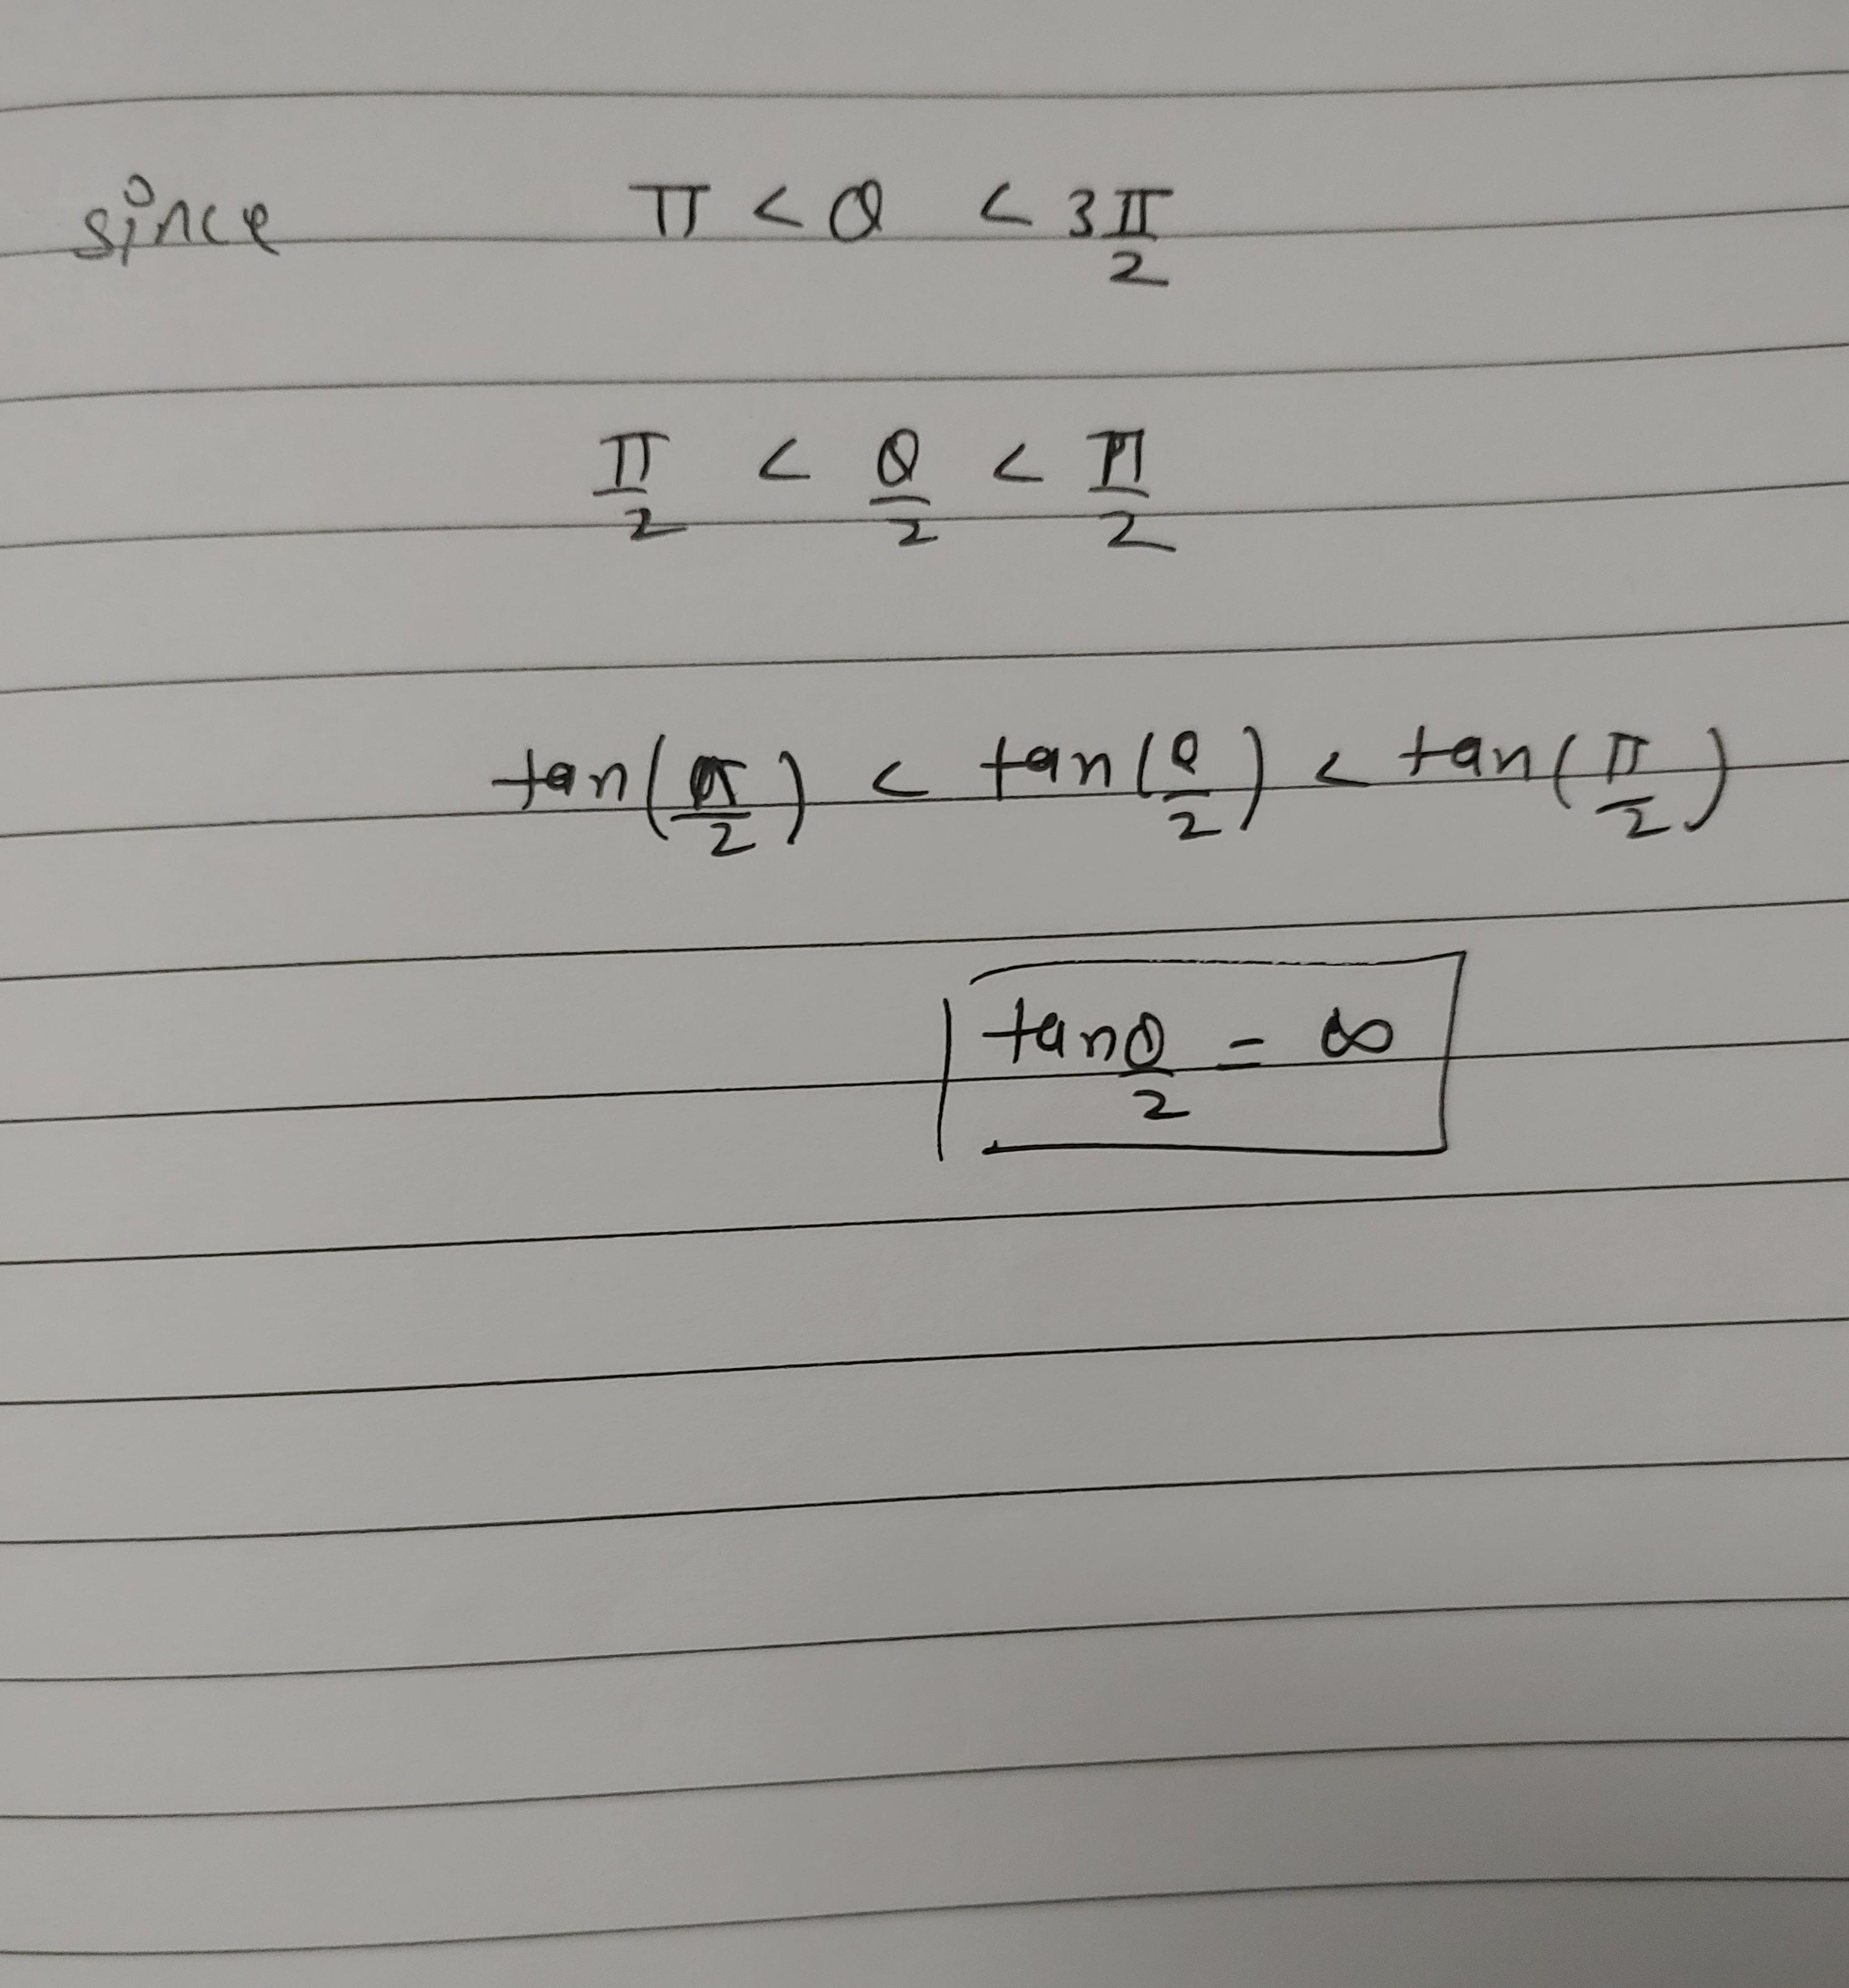 since π < θ < 3π/2
π/2 < θ/2 < π/2
tan(π/2) < tan(θ/2) < tan(π/2)
tan θ/2 = ∞